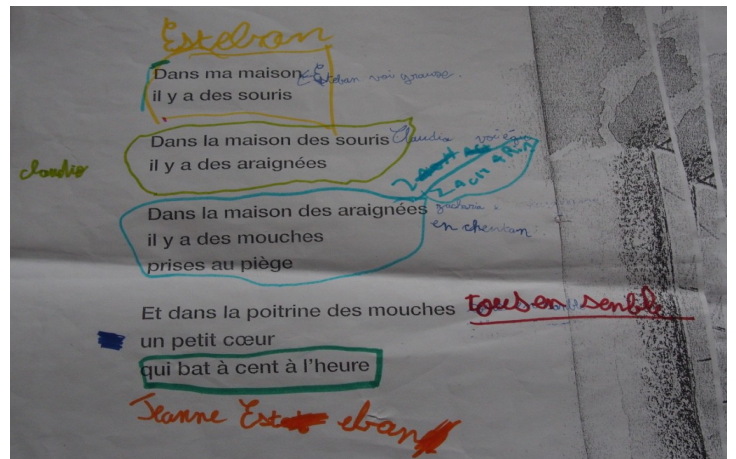 Esteban
Dans ma maison Esteban voi grause.
il y a des souris
Dans la maison des souris Claudia
il y a des araignées
claudia
Dans la maison des araignées zacharia
il y a des mouches en chentan
prises au piège
Et dans la poitrine des mouches tous en senble
un petit cœur
qui bat à cent à l'heure
Jeanne Esteban